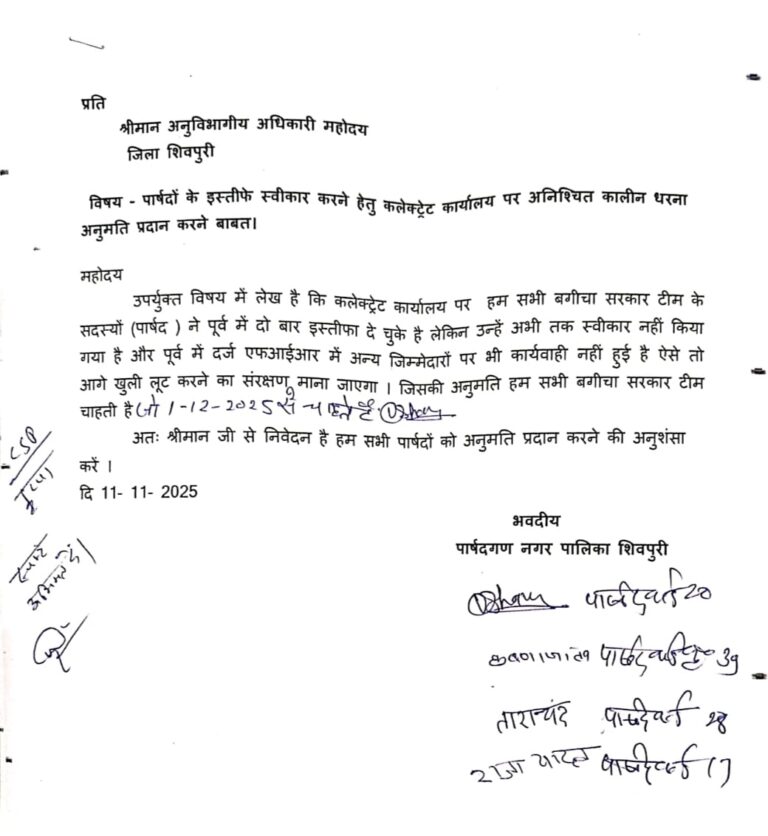 प्रति
श्रीमान अनुविभागीय अधिकारी महोदय
जिला शिवपुरी
विषय - पार्षदों के इस्तीफे स्वीकार करने हेतु कलेक्ट्रेट कार्यालय पर अनिश्चित कालीन धरना
अनुमति प्रदान करने बाबत।
महोदय
उपर्युक्त विषय में लेख है कि कलेक्ट्रेट कार्यालय पर हम सभी बगीचा सरकार टीम के
सदस्यों (पार्षद ) ने पूर्व में दो बार इस्तीफा दे चुके है लेकिन उन्हें अभी तक स्वीकार नहीं किया
गया है और पूर्व में दर्ज एफआईआर में अन्य जिम्मेदारों पर भी कार्यवाही नहीं हुई है ऐसे तो
आगे खुली लूट करने का संरक्षण माना जाएगा । जिसकी अनुमति हम सभी बगीचा सरकार टीम
चाहती है जो 1-12-2025 से चाहते है
अतः श्रीमान जी से निवेदन है हम सभी पार्षदों को अनुमति प्रदान करने की अनुशंसा
करें ।
दि 11- 11- 2025
CSP
भवदीय
पार्षदगण नगर पालिका शिवपुरी
पार्षद वार्ड 20
पार्षद वार्ड 39
ताराचंद पार्षद वार्ड
राजा यादव पार्षद वार्ड 17